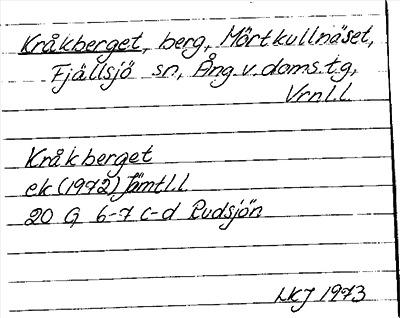 Kråkberget, berg, Mörtkullnäset,
Fjällsjö sn, Ång.v.doms.t.g,
Vrnl.l.
Kråkberget
ek (1972) Jämtl.l
20 G 6-7 c-d Rudsjön
LKJ 1973